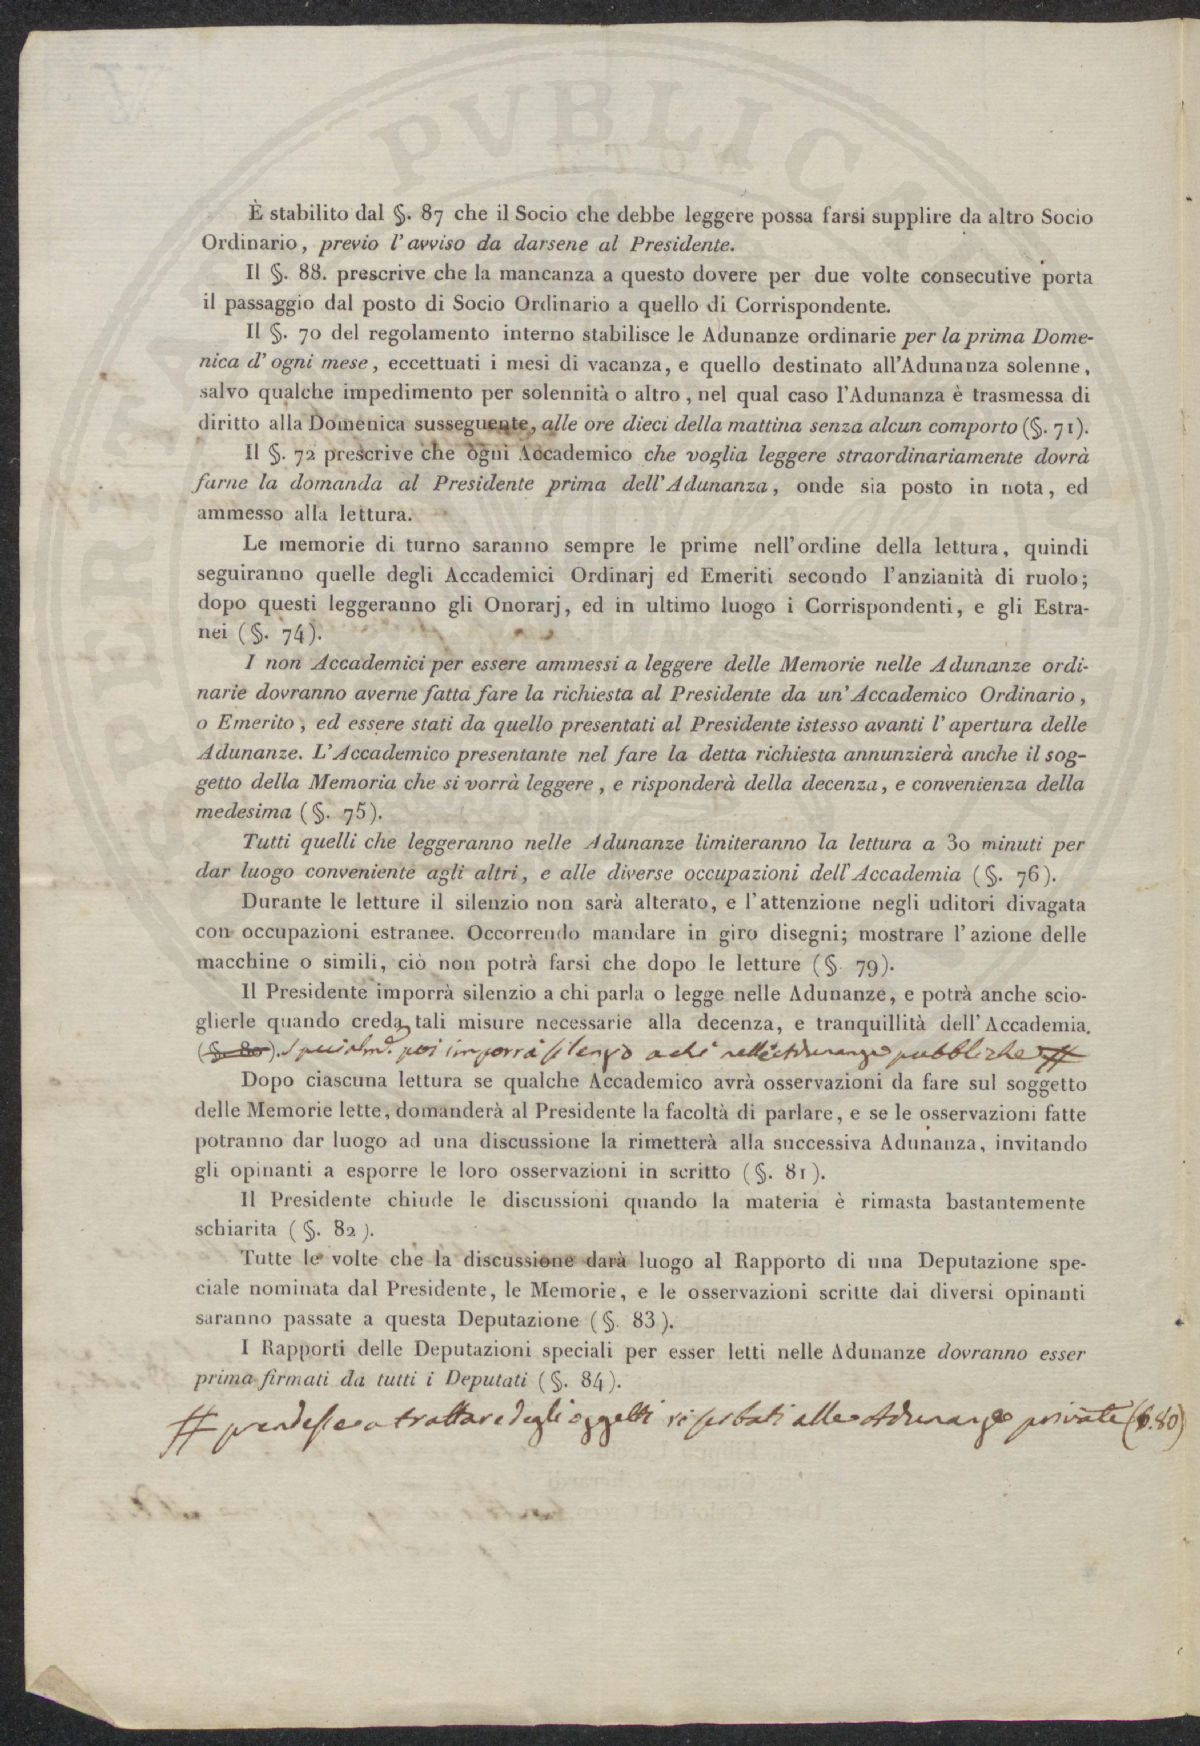 È stabilito dal §. 87 che il Socio che debbe leggere possa farsi supplire da altro Socio
Ordinario, previo l'avviso da darsene al Presidente.
Il §. 88. prescrive che la mancanza a questo dovere per due volte consecutive porta
il passaggio dal posto di Socio Ordinario a quello di Corrispondente.
Il §. 70 del regolamento interno stabilisce le Adunanze ordinarie per la prima Dome-
nica d'ogni mese, eccettuati i mesi di vacanza, e quello destinato all'Adunanza solenne,
salvo qualche impedimento per solennità o altro, nel qual caso l'Adunanza è trasmessa di
diritto alla Domenica susseguente, alle ore dieci della mattina senza alcun comporto (§. 71).
Il §. 72 prescrive che ogni Accademico che voglia leggere straordinariamente dovrà
farne la domanda al Presidente prima dell'Adunanza, onde sia posto in nota, ed
ammesso alla lettura.
Le memorie di turno saranno sempre le prime nell'ordine della lettura, quindi
seguiranno quelle degli Accademici Ordinarj ed Emeriti secondo l'anzianità di ruolo;
dopo questi leggeranno gli Onorarj, ed in ultimo luogo i Corrispondenti, e gli Estra-
nei (§. 74).
I non Accademici per essere ammessi a leggere delle Memorie nelle Adunanze ordi-
narie dovranno averne fatta fare la richiesta al Presidente da un'Accademico Ordinario,
o Emerito, ed essere stati da quello presentati al Presidente istesso avanti l'apertura delle
Adunanze. L'Accademico presentante nel fare la detta richiesta annunzierà anche il sog-
getto della Memoria che si vorrà leggere, e risponderà della decenza, e convenienza della
medesima (§. 75).
Tutti quelli che leggeranno nelle Adunanze limiteranno la lettura a 30 minuti per
dar luogo conveniente agli altri, e alle diverse occupazioni dell'Accademia (§. 76).
Durante le letture il silenzio non sarà alterato, e l'attenzione negli uditori divagata
con occupazioni estranee. Occorrendo mandare in giro disegni; mostrare l'azione delle
macchine o simili, ciò non potrà farsi che dopo le letture (§. 79).
Il Presidente imporrà silenzio a chi parla o legge nelle Adunanze, e potrà anche scio-
glierle quando creda tali misure necessarie alla decenza, e tranquillità dell'Accademia.
(§. 80). Specialm.e poi imporrà silenzio a chi nelle Adunanze pubbliche #
Dopo ciascuna lettura se qualche Accademico avrà osservazioni da fare sul soggetto
delle Memorie lette, domanderà al Presidente la facoltà di parlare, e se le osservazioni fatte
potranno dar luogo ad una discussione la rimetterà alla successiva Adunanza, invitando
gli opinanti a esporre le loro osservazioni in scritto (§. 81).
Il Presidente chiude le discussioni quando la materia è rimasta bastantemente
schiarita (§. 82).
Tutte le volte che la discussione darà luogo al Rapporto di una Deputazione spe-
ciale nominata dal Presidente, le Memorie, e le osservazioni scritte dai diversi opinanti
saranno passate a questa Deputazione (§. 83).
I Rapporti delle Deputazioni speciali per esser letti nelle Adunanze dovranno esser
prima firmati da tutti i Deputati (§. 84).
# prendesse a trattare degli oggetti riserbati alle Adunanze private (§. 80)